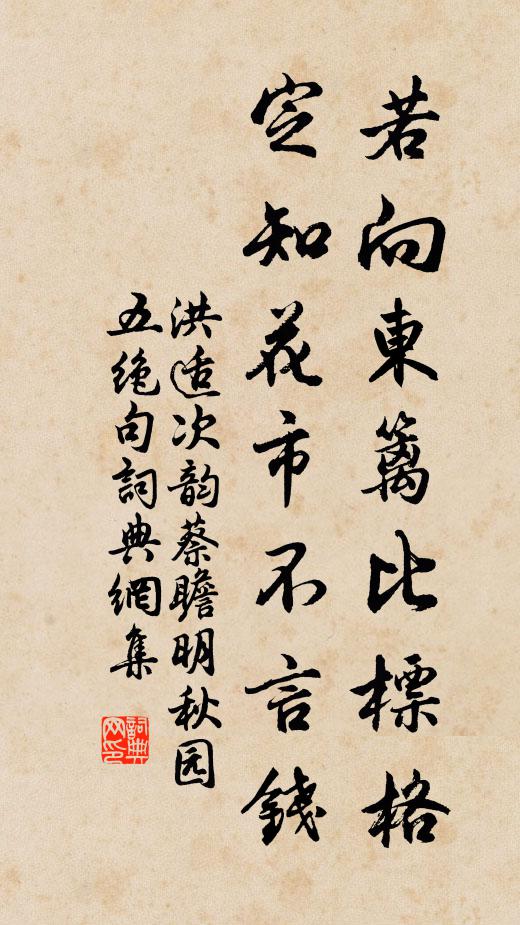 若向東籬比標格
定知花市不言錢
洪适次韵蔡瞻明秋园
五绝句詞典網集
詞典
网印